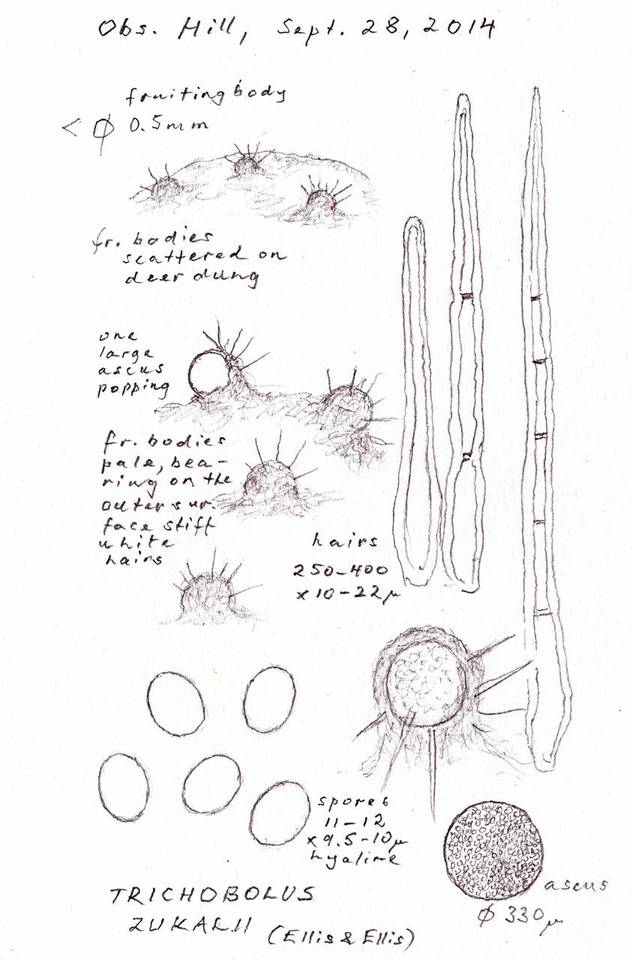 Obs. Hill, Sept. 28, 2014
fruiting body
< ϕ 0.5mm
fr. bodies
scattered on
deer dung
one
large
ascus
popping
fr. bodies
pale, bea-
ring on the
outer sur.
face stiff
white
hairs
hairs
250-400
x 10-22μ
spores
11-12
x 9.5-10μ
hyaline
ascus
ϕ 330μ
TRICHOBOLUS
ZUKALII
(Ellis & Ellis)